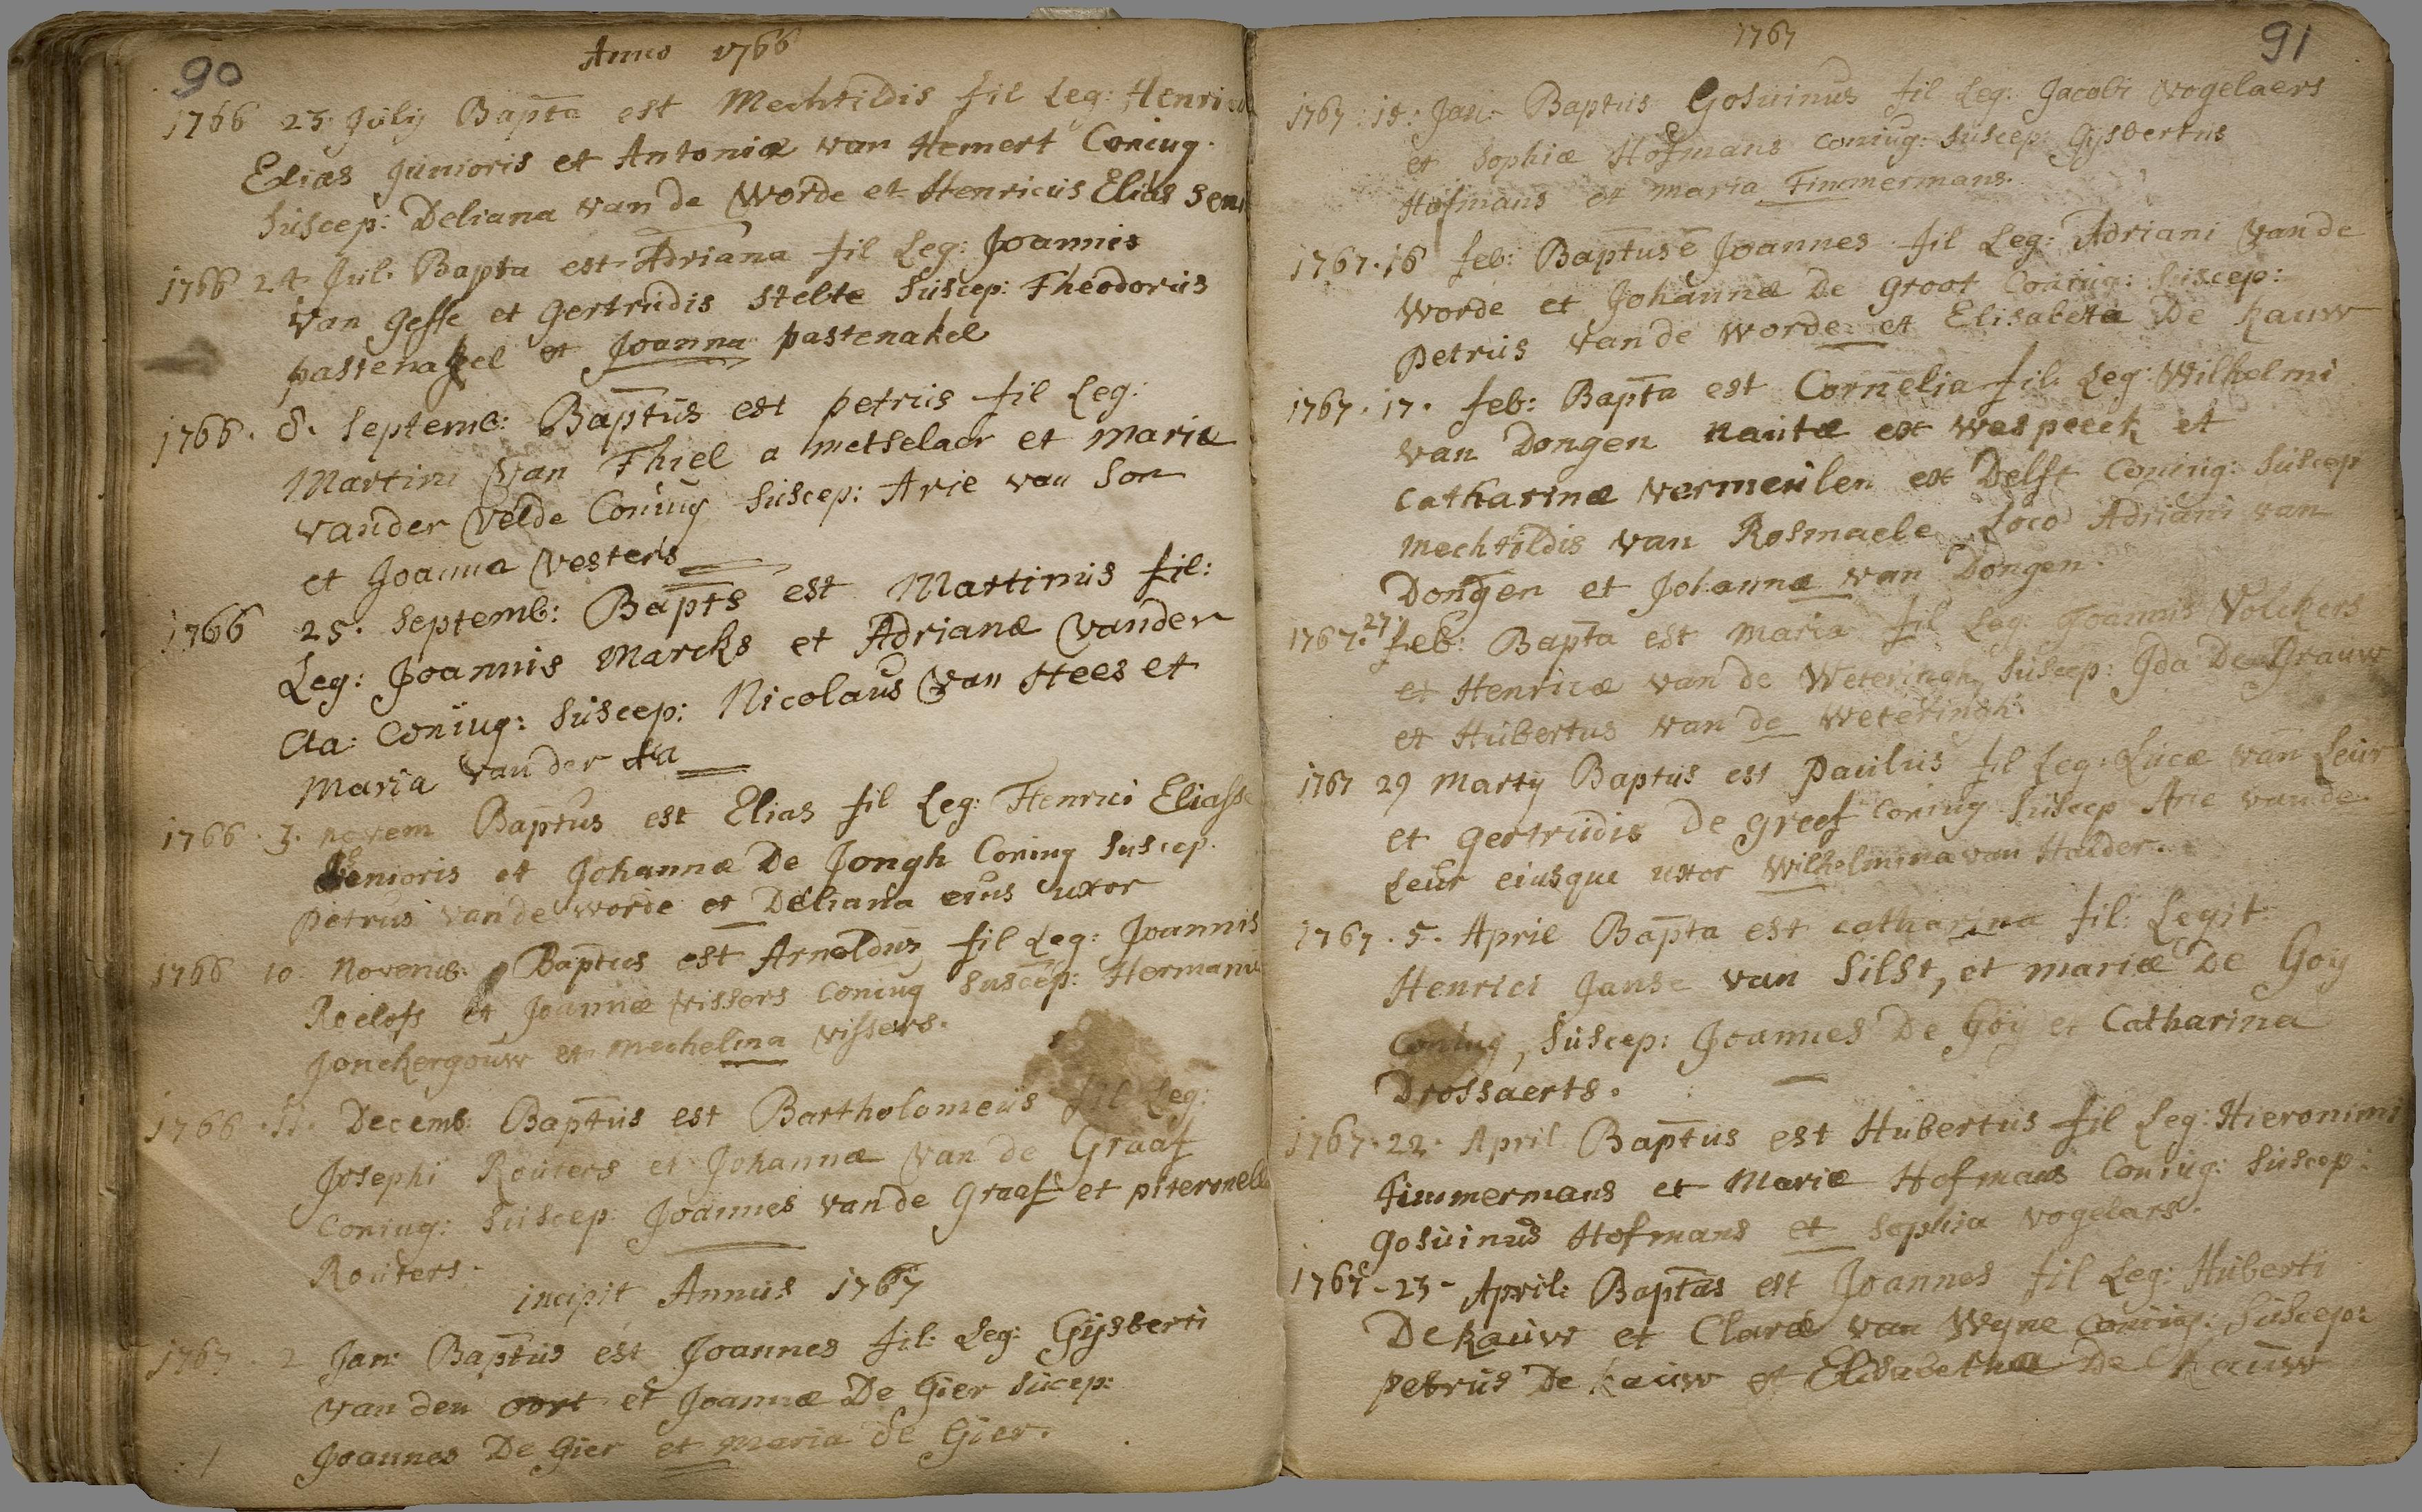 90
Anno 1766
1766 23. Julij Bapta est Mechtildis fil Leg: Henrici
Elias Junioris et Antoniæ van Hemert Coniug.
Suscep: Deliana van de Worde et Henricus Elias Seni
1766 24 Jul. Bapta est Adriana fil Leg: Joannis
van Gesse et Gertrudis Stelte Suscep: Theodorus
pastenakel et Joanna pastenakel
1766. 8. Septemb: Baptus est petrus fil Leg:
Martini van Thiel a metselaer et Mariæ
vander Velde Coniug Suscep: Arie van Son
et Joanna Vesters
1766 25. Septemb: Bapts est Martinus fil:
Leg: Joannis Marcks et Adrianæ vander
Aa: Coniug: Suscep: Nicolaus van Hees et
Maria vander Aa
1766. 3. novem Baptus est Elias fil Leg: Henrici Eliasse
Senioris et Johannæ De Jongh Coniug Suscep.
Petrus van de worde et Deliana eius uxor
1766 10. Novemb: Baptus est Arnoldus fil Leg: Joannis
Roelofs et Joannæ Vissers Coniug Suscep: Hermanu
Jonckergouw et Mechelina Vissers.
1766. 11. Decemb: Baptus est Bartholomeus fil Leg:
Josephi Routers et Johannæ van de Graaf
Coniug: Suscep: Joannes van de Graaf et piteronella
Routers.
incipit Annus 1767
1767. 2 Jan: Baptus est Joannes fil: Leg: Gijsberti
van den oort et Joannæ De Gier Sucep:
Joannes De Gier et Maria de Gier.
1767
91
1767. 15. Jan: Baptus Gosuinus fil Leg: Jacobi Vogelaers
et Sophiæ Hofmans coniug: Suscep: Gijsbertus
Hofmans et Maria Timmermans.
1767. 16 feb: Baptus e Joannes fil Leg: Adriani van de
Worde et Johannæ De Groot Coniug: Suscep:
Petrus van de worde et Elisabeta De Kauw
1767. 17. feb: Bapta est Cornelia fil. Leg: Wilhelmi
van Dongen nautæ ex Waspeeck et
Catharinæ Vermeulen ex Delft Coniug: Suscep
Mechtildis van Rosmaele Loco Adriani van
Dongen et Johannæ van Dongen.
1767. 27 feb: Bapta est Maria fil Leg: Joannis Volckers
et Henricæ van de Weteringh, Suscep: Ida De Grauw
et Hubertus van de Weteringh.
1767 29 Martij Baptus est Paulus fil Leg: Lucæ van Leur
et Gertrudis De greef Coniug Suscep Arie van de
Leur eiusque uxor Wilhelmina van Halder.
1767. 5. April Bapta est catharina fil: Legit
Henrici Janse van Silst, et mariæ De Goij
Coniug, Suscep: Joannes De Goij et Catharina
Drossaerts.
1767. 22. April Baptus est Hubertus fil Leg: Hieronimi
Timmermans et Mariæ Hofmans Coniug: Suscep:
Gosuinus Hofmans et Sophia Vogelars.
1767 - 23 - April: Baptus est Joannes fil Leg: Huberti
De Kauw et Claræ van Wyne Coniug: Suscep:
petrus De Kauw et Elisabetha De Kauw